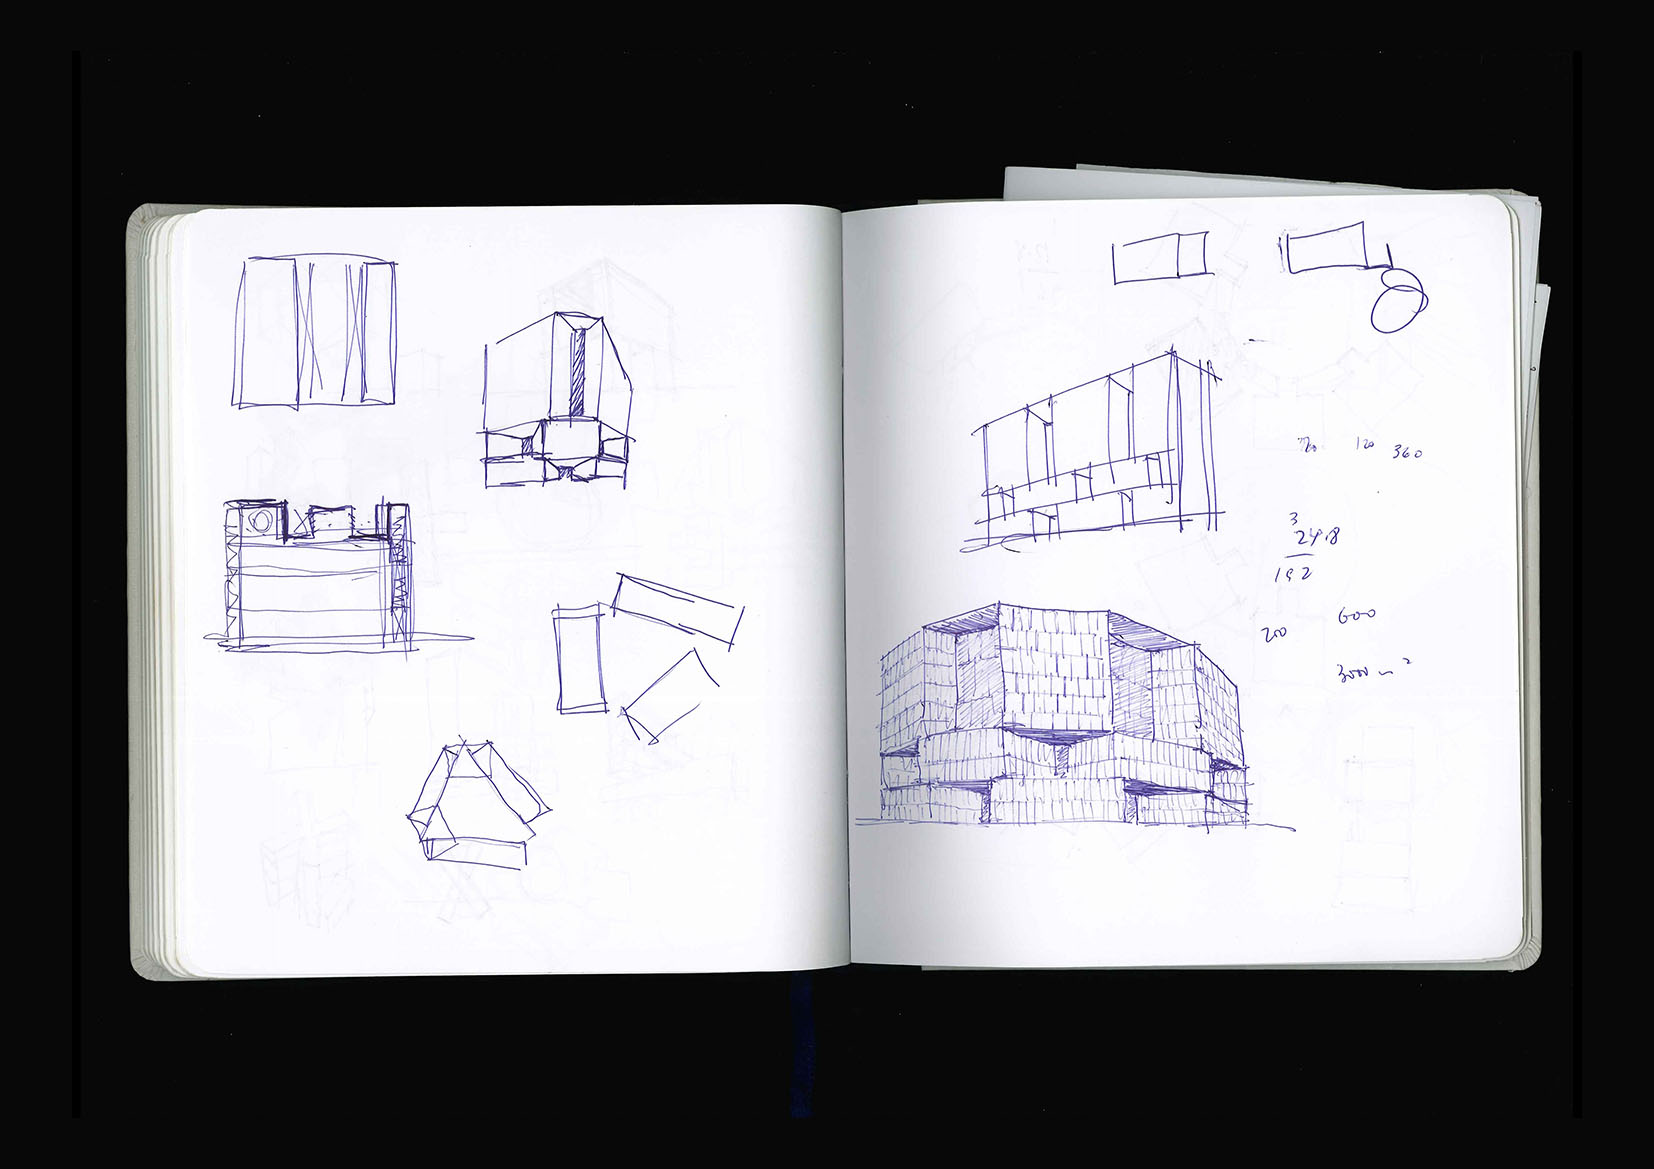 120 360
3
24.8
192
600
200
3000 m²